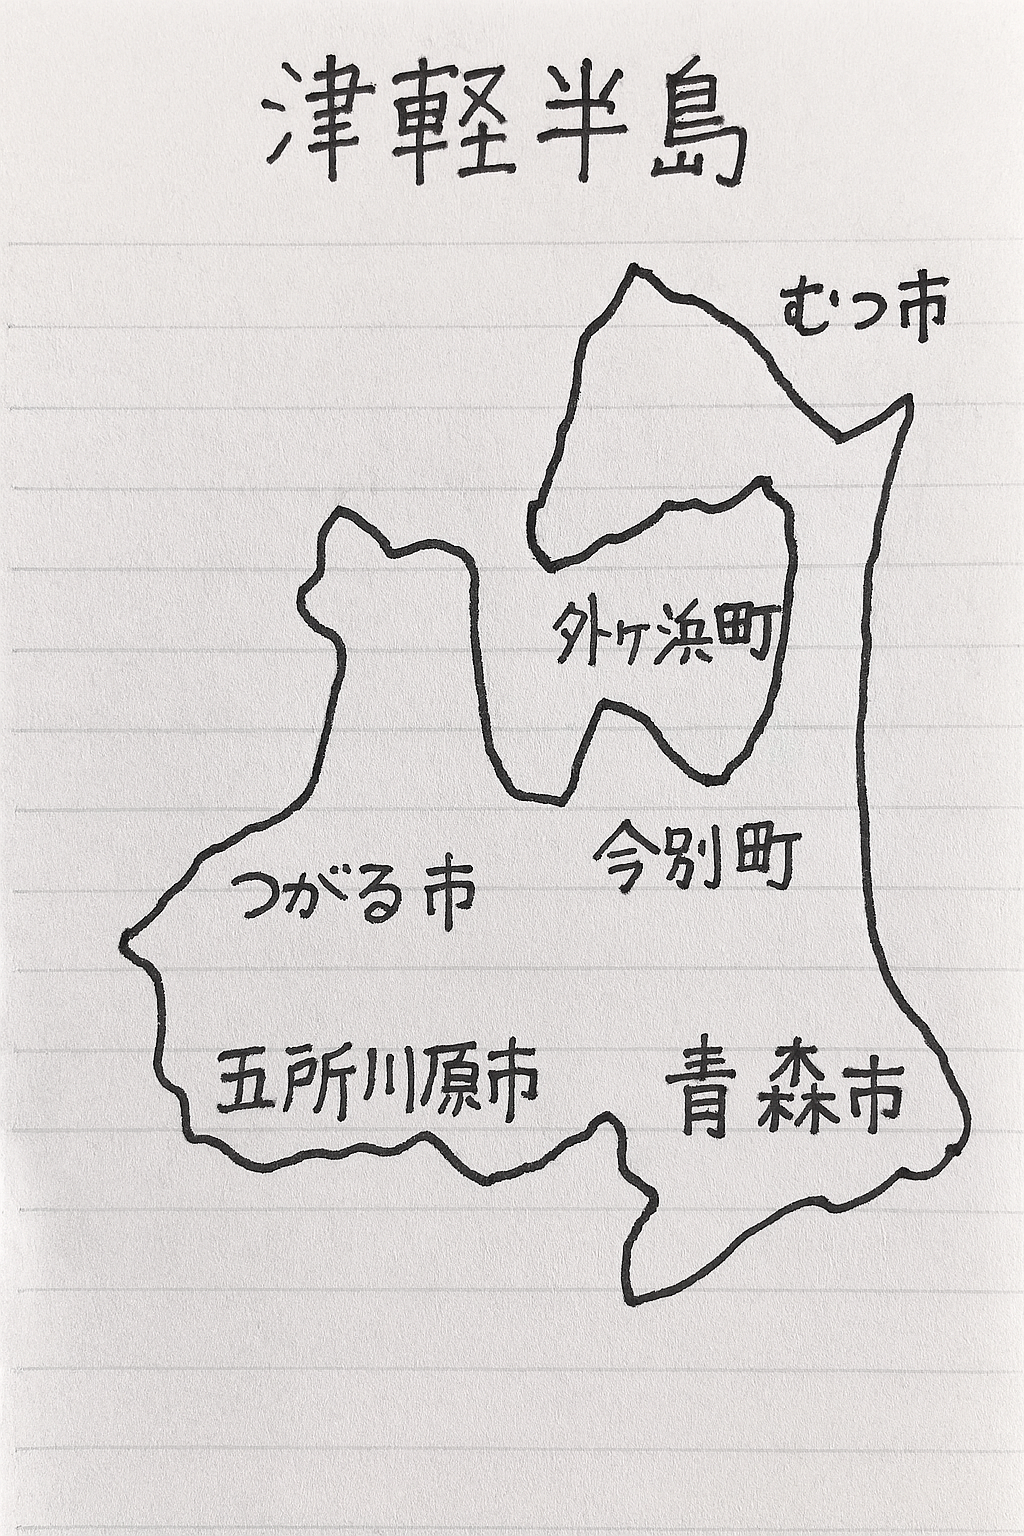 津軽半島
むつ市
外ヶ浜町
今別町
つがる市
五所川原市
青森市